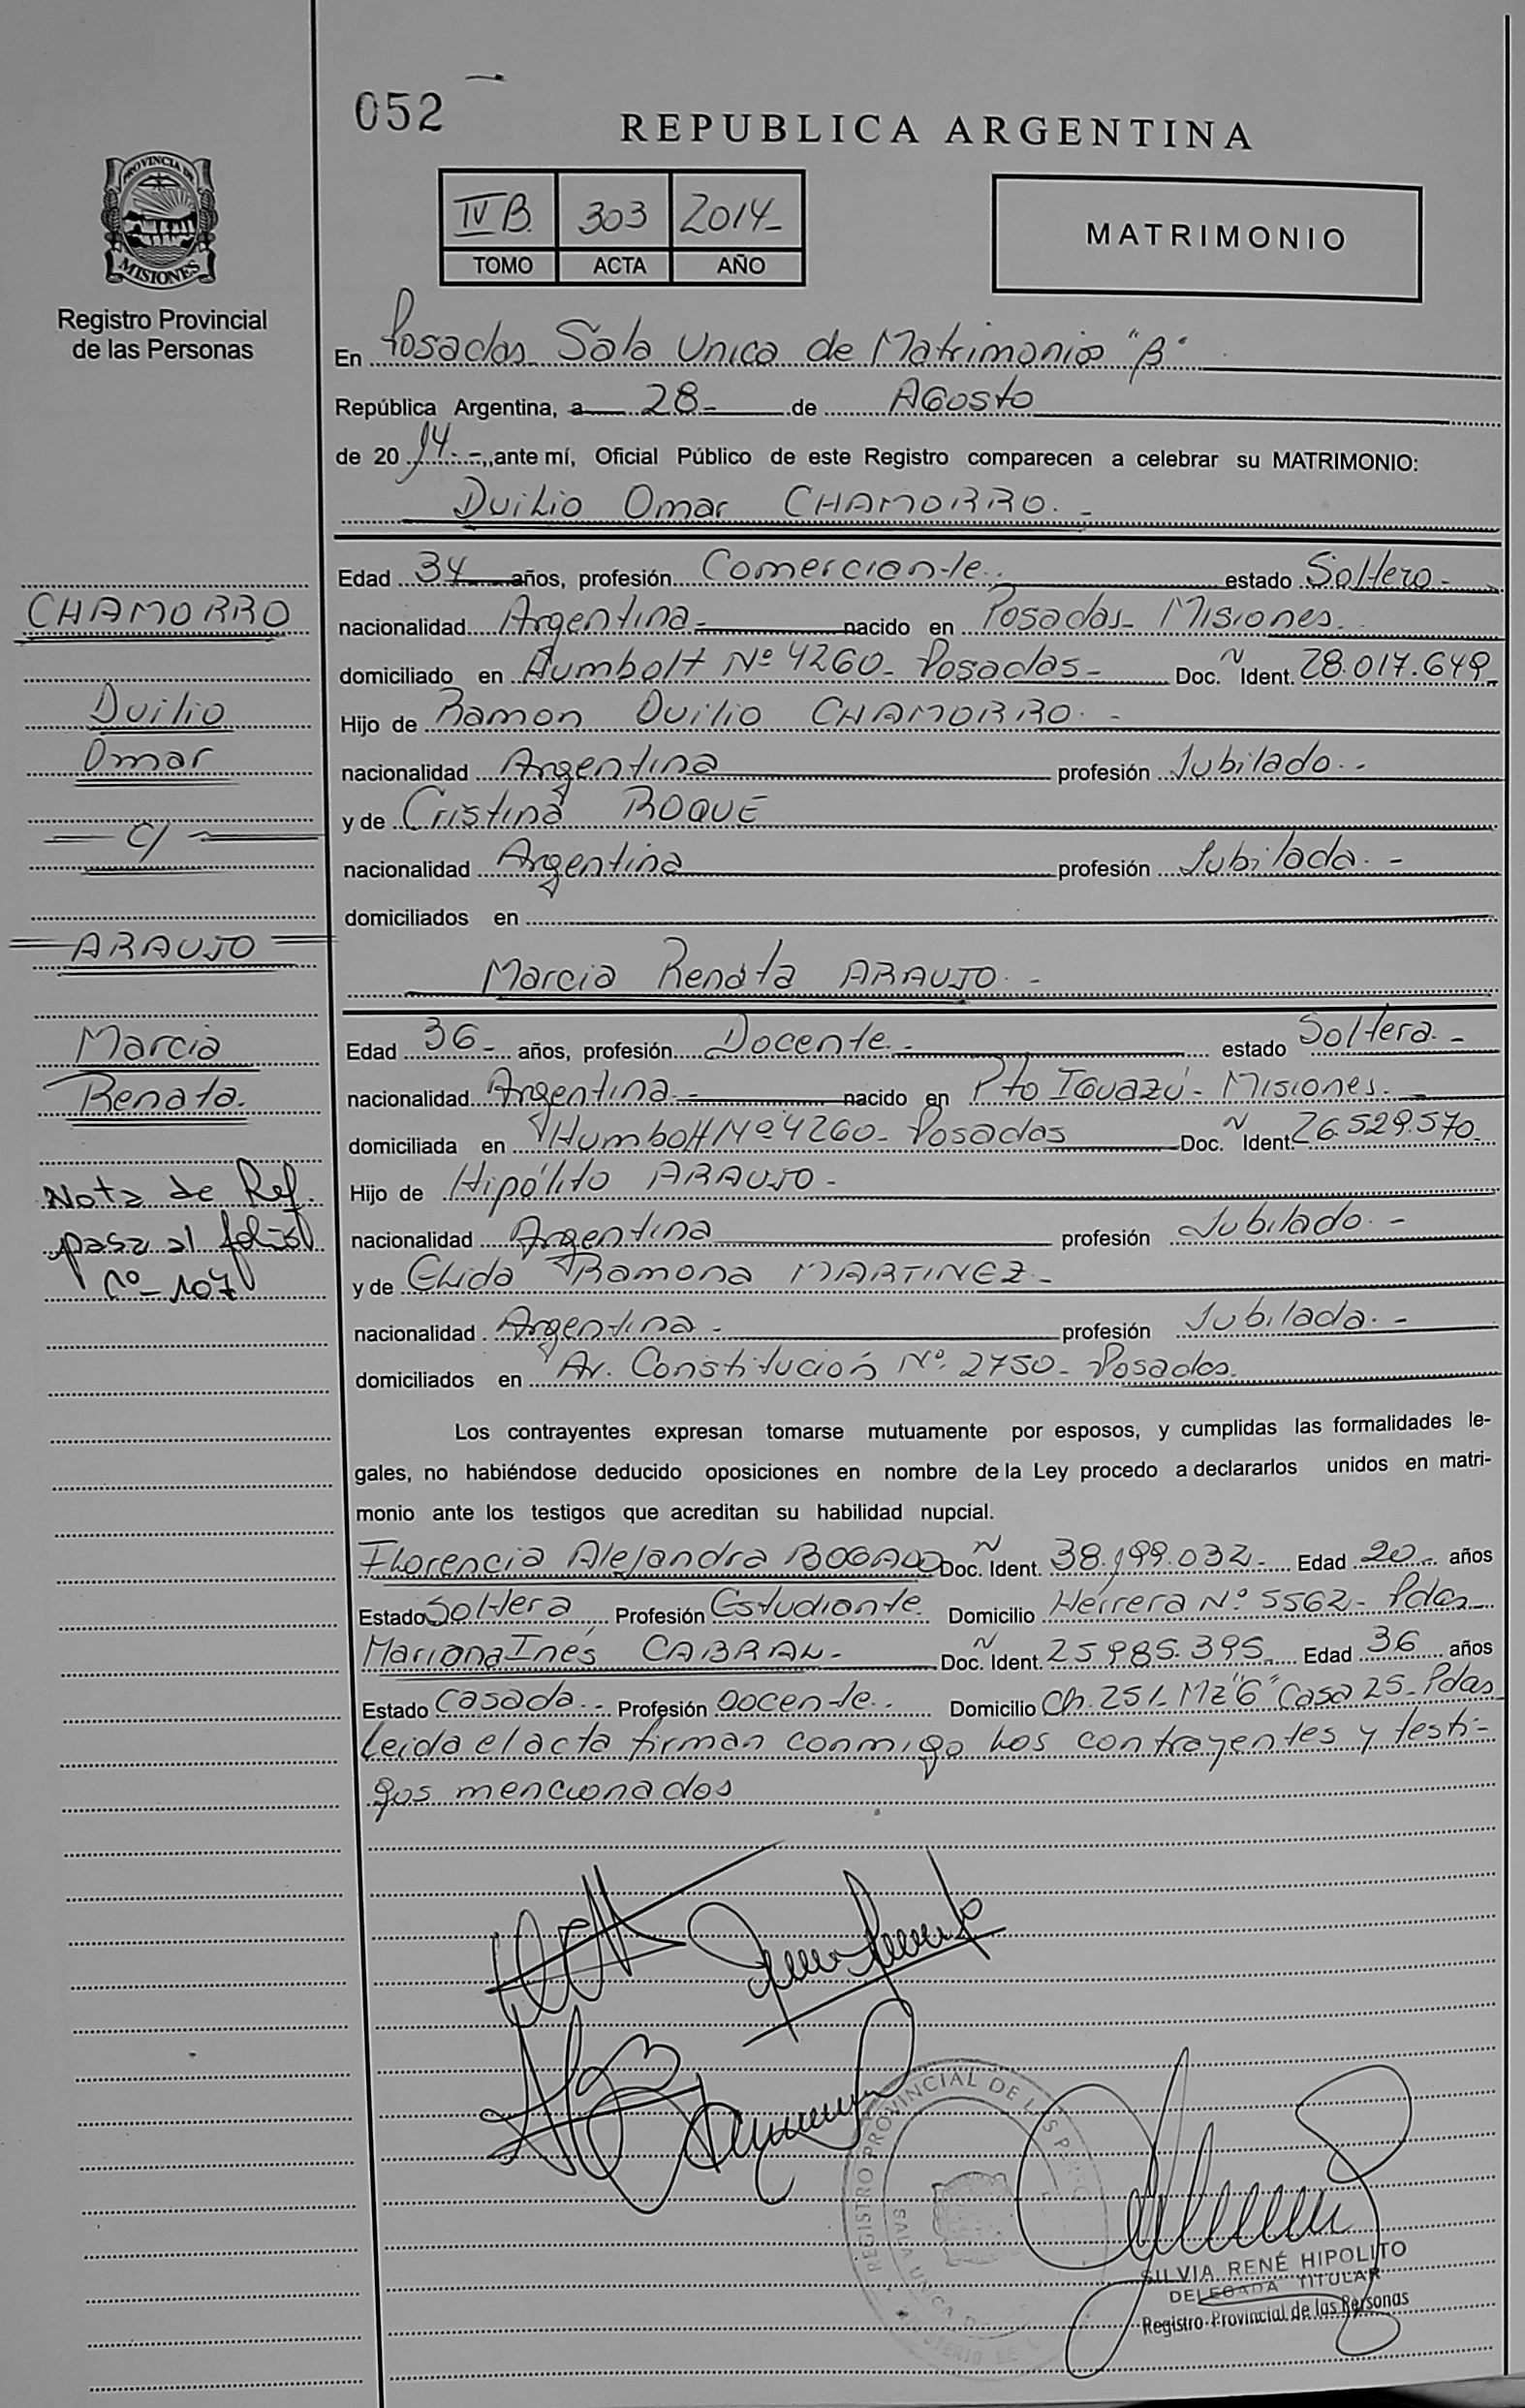 052
REPUBLICA ARGENTINA
PROVINCIA DE
MISIONES
Registro Provincial
de las Personas
IV B. 303 2014-
TOMO ACTA AÑO
MATRIMONIO
En Posadas Sala Unica de Matrimonios "B"
República Argentina, a 28- de AGosto
de 20 14.-, ante mí, Oficial Público de este Registro comparecen a celebrar su MATRIMONIO:
Duilio Omar CHAMORRO.-
Edad 34 años, profesión Comerciante.- estado Soltero-
nacionalidad Argentina- nacido en Posadas- Misiones.
domiciliado en Humbolt Nº 4260- Posadas- Doc. N Ident. 28.017.649-
Hijo de Ramon Duilio CHAMORRO.-
nacionalidad Argentina profesión Jubilado.-
y de Cristina ROQUE
nacionalidad Argentina profesión Jubilada.-
domiciliados en
Marcia Renata ARAUJO.-
Edad 36- años, profesión Docente.- estado Soltera.-
nacionalidad Argentina.- nacido en Pto IGuazú- Misiones.-
domiciliada en Humbolt Nº 4260- Posadas Doc. N Ident. 26.529.570-
Hijo de Hipólito ARAUJO-
nacionalidad Argentina profesión Jubilado.-
y de Elida Ramona MARTINEZ-
nacionalidad Argentina- profesión Jubilada.-
domiciliados en Av. Constitución Nº 2750- Posadas.
Los contrayentes expresan tomarse mutuamente por esposos, y cumplidas las formalidades le-
gales, no habiéndose deducido oposiciones en nombre de la Ley procedo a declararlos unidos en matri-
monio ante los testigos que acreditan su habilidad nupcial.
Florencia Alejandra BOGADO Doc. N Ident. 38.199.032- Edad 20- años
Estado Soltera, Profesión Estudiante. Domicilio Herrera Nº 5562- Pdas-
Mariana Inés CABRAL- Doc. N Ident. 25.985.395- Edad 36 años
Estado Casada.- Profesión Docente.- Domicilio Ch. 251- Mz "G" Casa 25- Pdas
Leida el acta firman conmigo los contrayentes y testi-
gos mencionados
CHAMORRO
Duilio
Omar
C/
ARAUJO
Marcia
Renata.
Nota de Ref.
pasa al folio
nº- 107
REGISTRO PROVINCIAL DE LAS PERS
SILVIA RENÉ HIPOLITO
DELEGADA TITULAR
Registro Provincial de las Personas